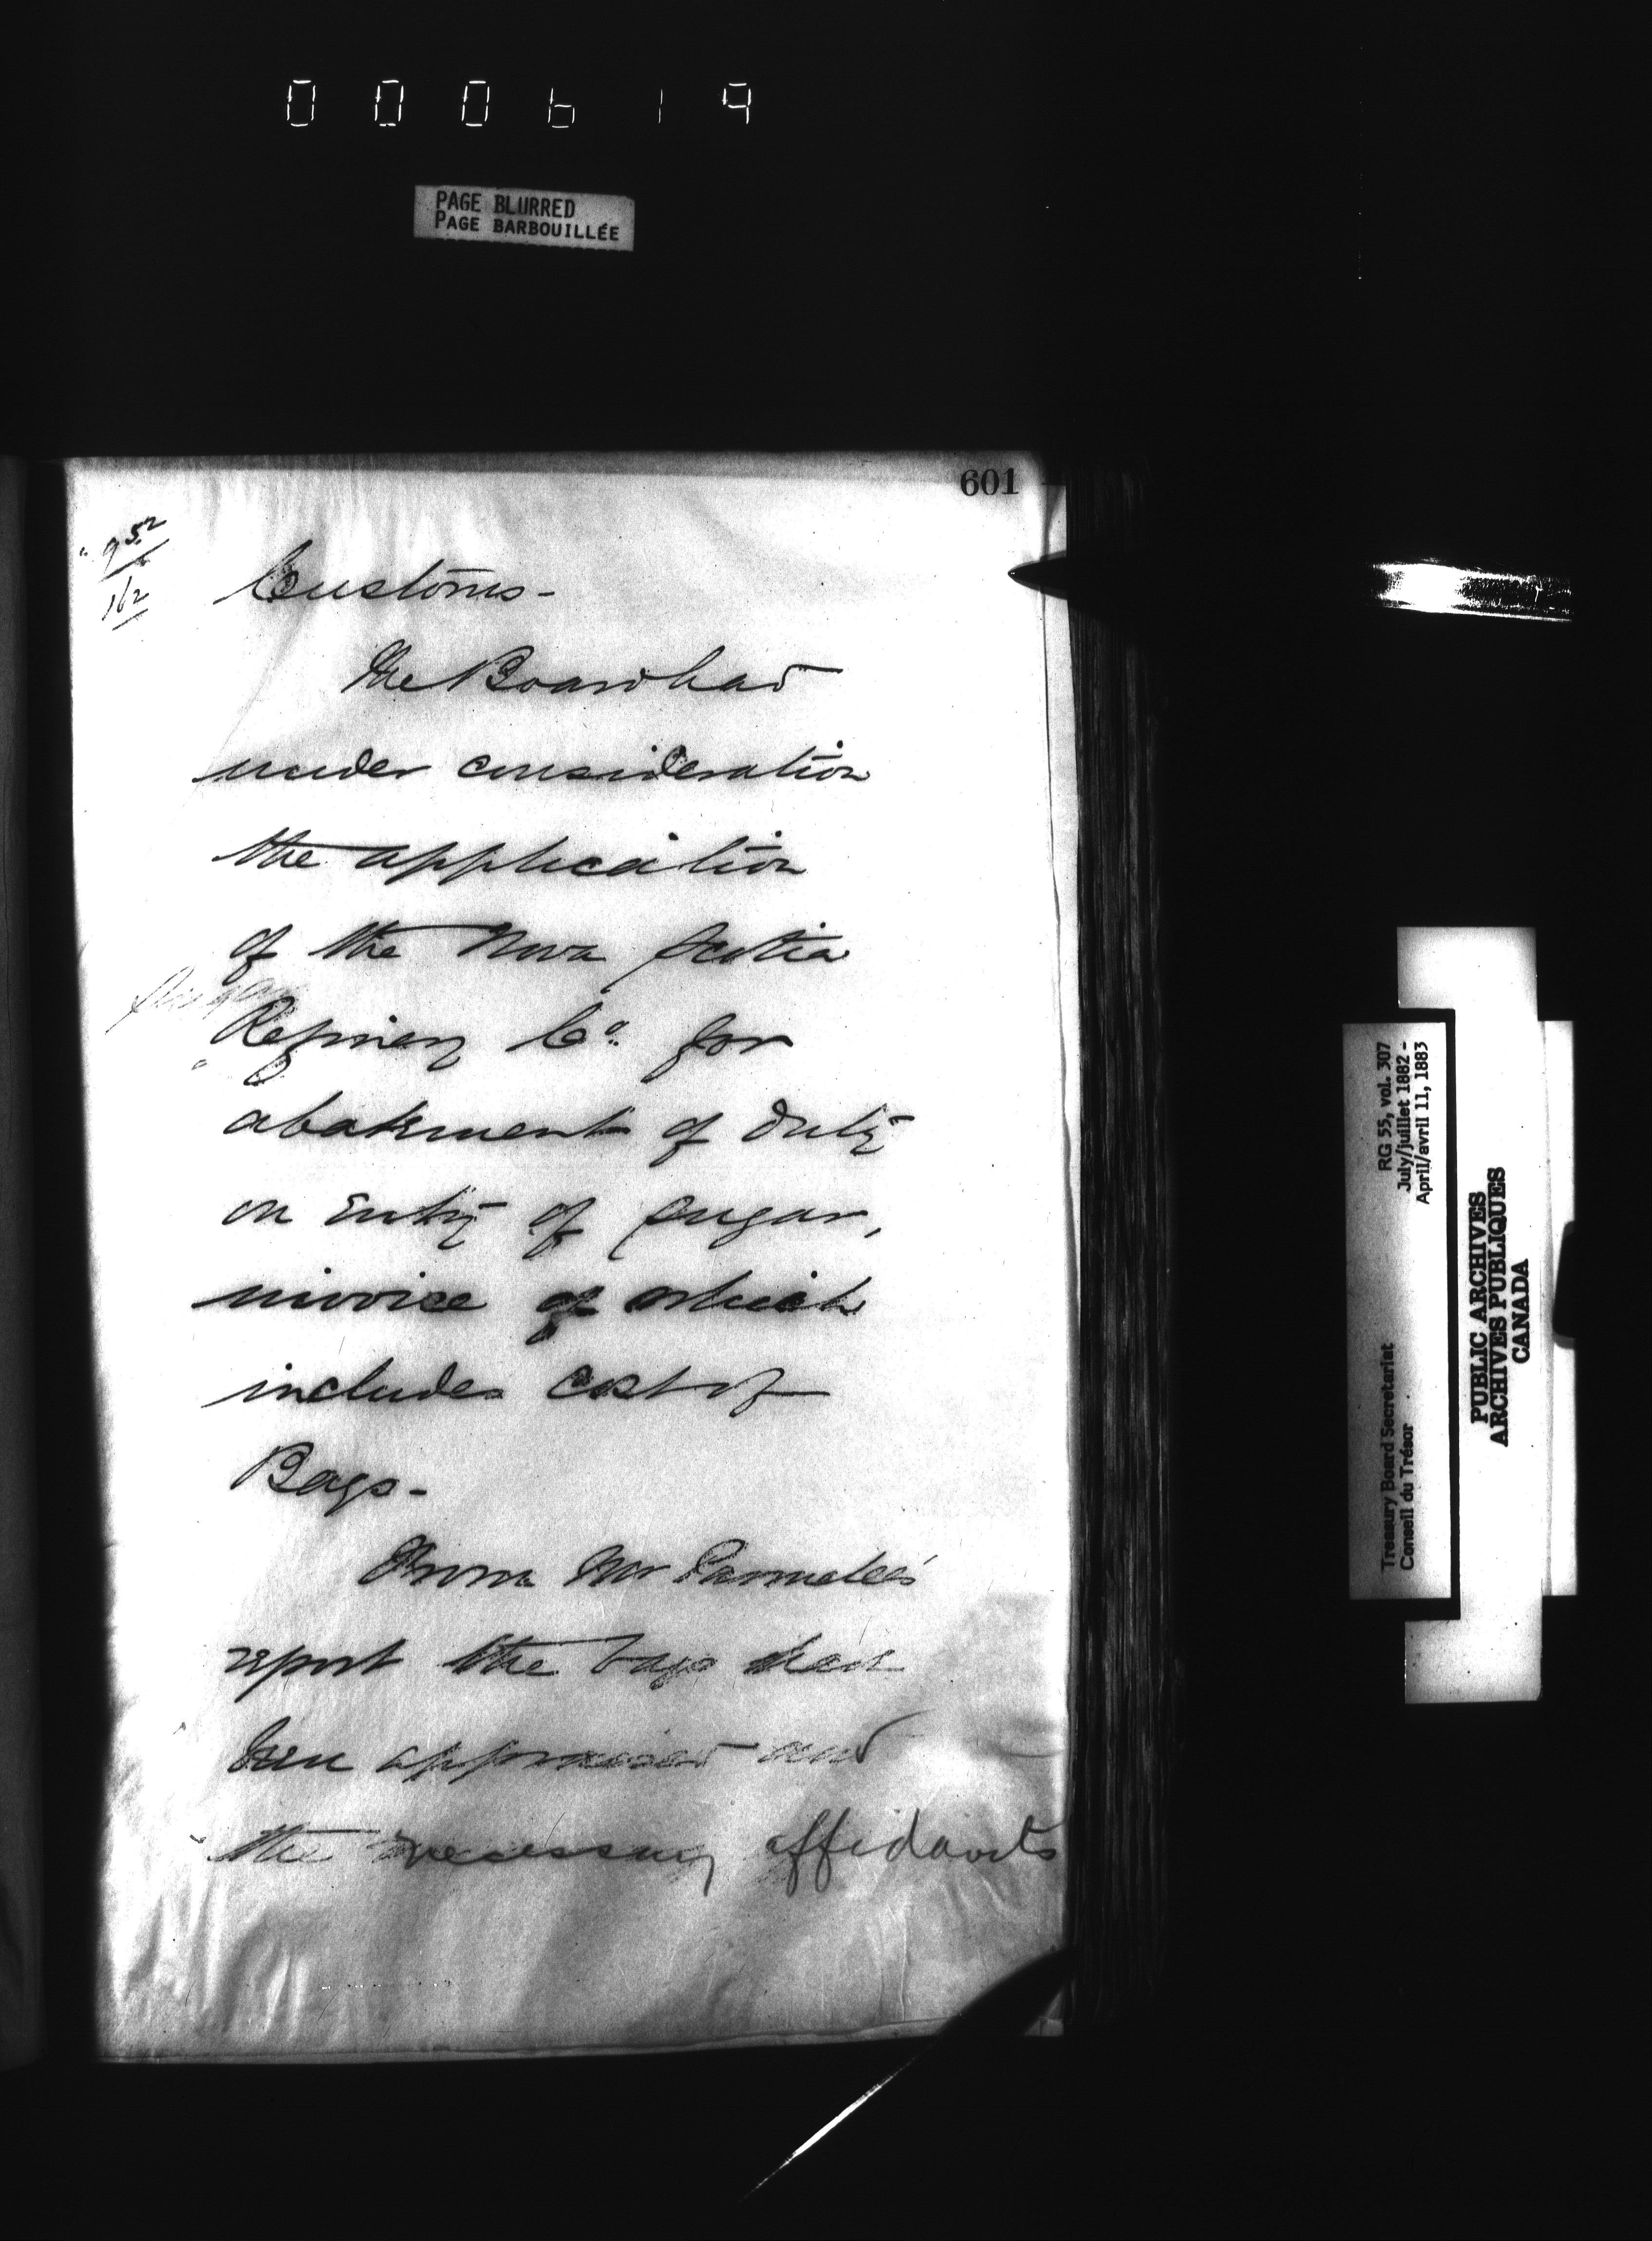 000619
PAGE BLURRED
PAGE BARBOUILLÉE
601
952
162
Customs-
The Board had
under consideration
the application
of the Nova Scotia
Sugar
Refinery Co. for
abatement of duty
on Entry of Sugar,
invoice of which
includes cost of
Bags-
From Mr Parmelee's
report the bags have
been appraised and
the necessary affidavits
RG 55, vol. 307
July/juillet 1882 -
April/avril 11, 1883
Treasury Board Secretariat
Conseil du Trésor
PUBLIC ARCHIVES
ARCHIVES PUBLIQUES
CANADA